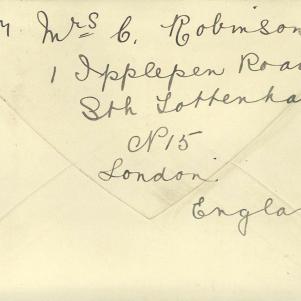 m Mrs C. Robinson
1 Ipplepen Road
Sth Tottenha
N15
London.
Engla